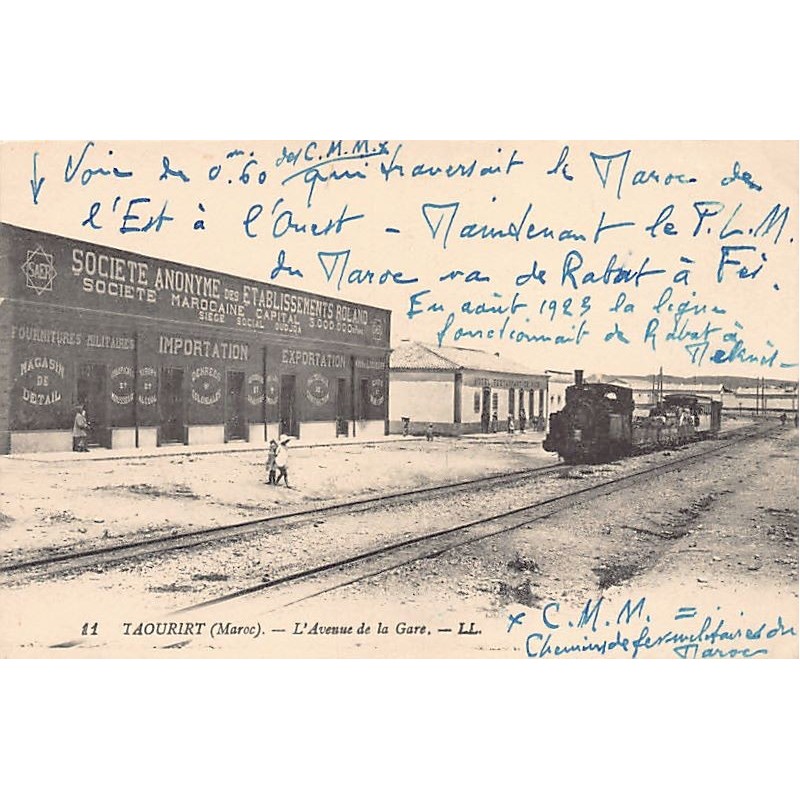 ↓ Voie de 0m.60 des C.M.M.x qui traversait le Maroc de
l'Est à l'Ouest – Maintenant le P.L.M.
du Maroc va de Rabat à Fès.
En août 1923 la ligne
fonctionnait de Rabat à
Meknès –
SAER
SOCIETE ANONYME DES ETABLISSEMENTS ROLAND
SOCIETE MAROCAINE CAPITAL 3.000.000
SIEGE SOCIAL OUDJDA
FOURNITURES MILITAIRES
IMPORTATION
EXPORTATION
MAGASIN
DE
DETAIL
ET
ET
ALCOOL
DENRÉES
COLONIALES
ET
HOTEL RESTAURANT
11 TAOURIRT (Maroc). — L'Avenue de la Gare. — LL.
x C.M.M. =
Chemins de fer militaires du
Maroc